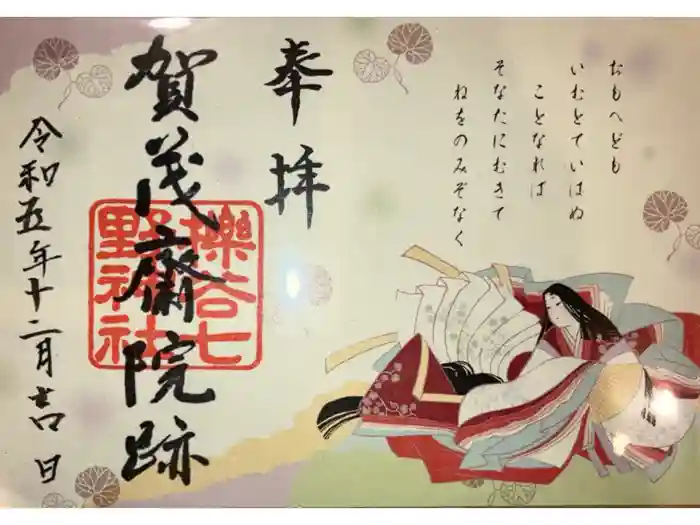 おもへども
いむとていはぬ
ことなれば
そなたにむきて
ねをのみぞなく
奉拝
賀茂斎院跡
櫟谷七
野神社
令和五年十二月吉日